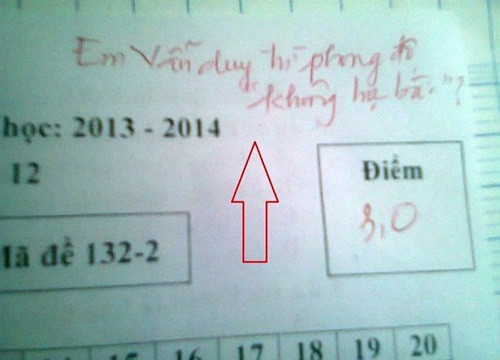 Em Vẫn duy trì phong độ
"không hạ
học: 2013 - 2014
12
Điểm
3,0
Mã đề 132-2
15 16 17 18 19 20